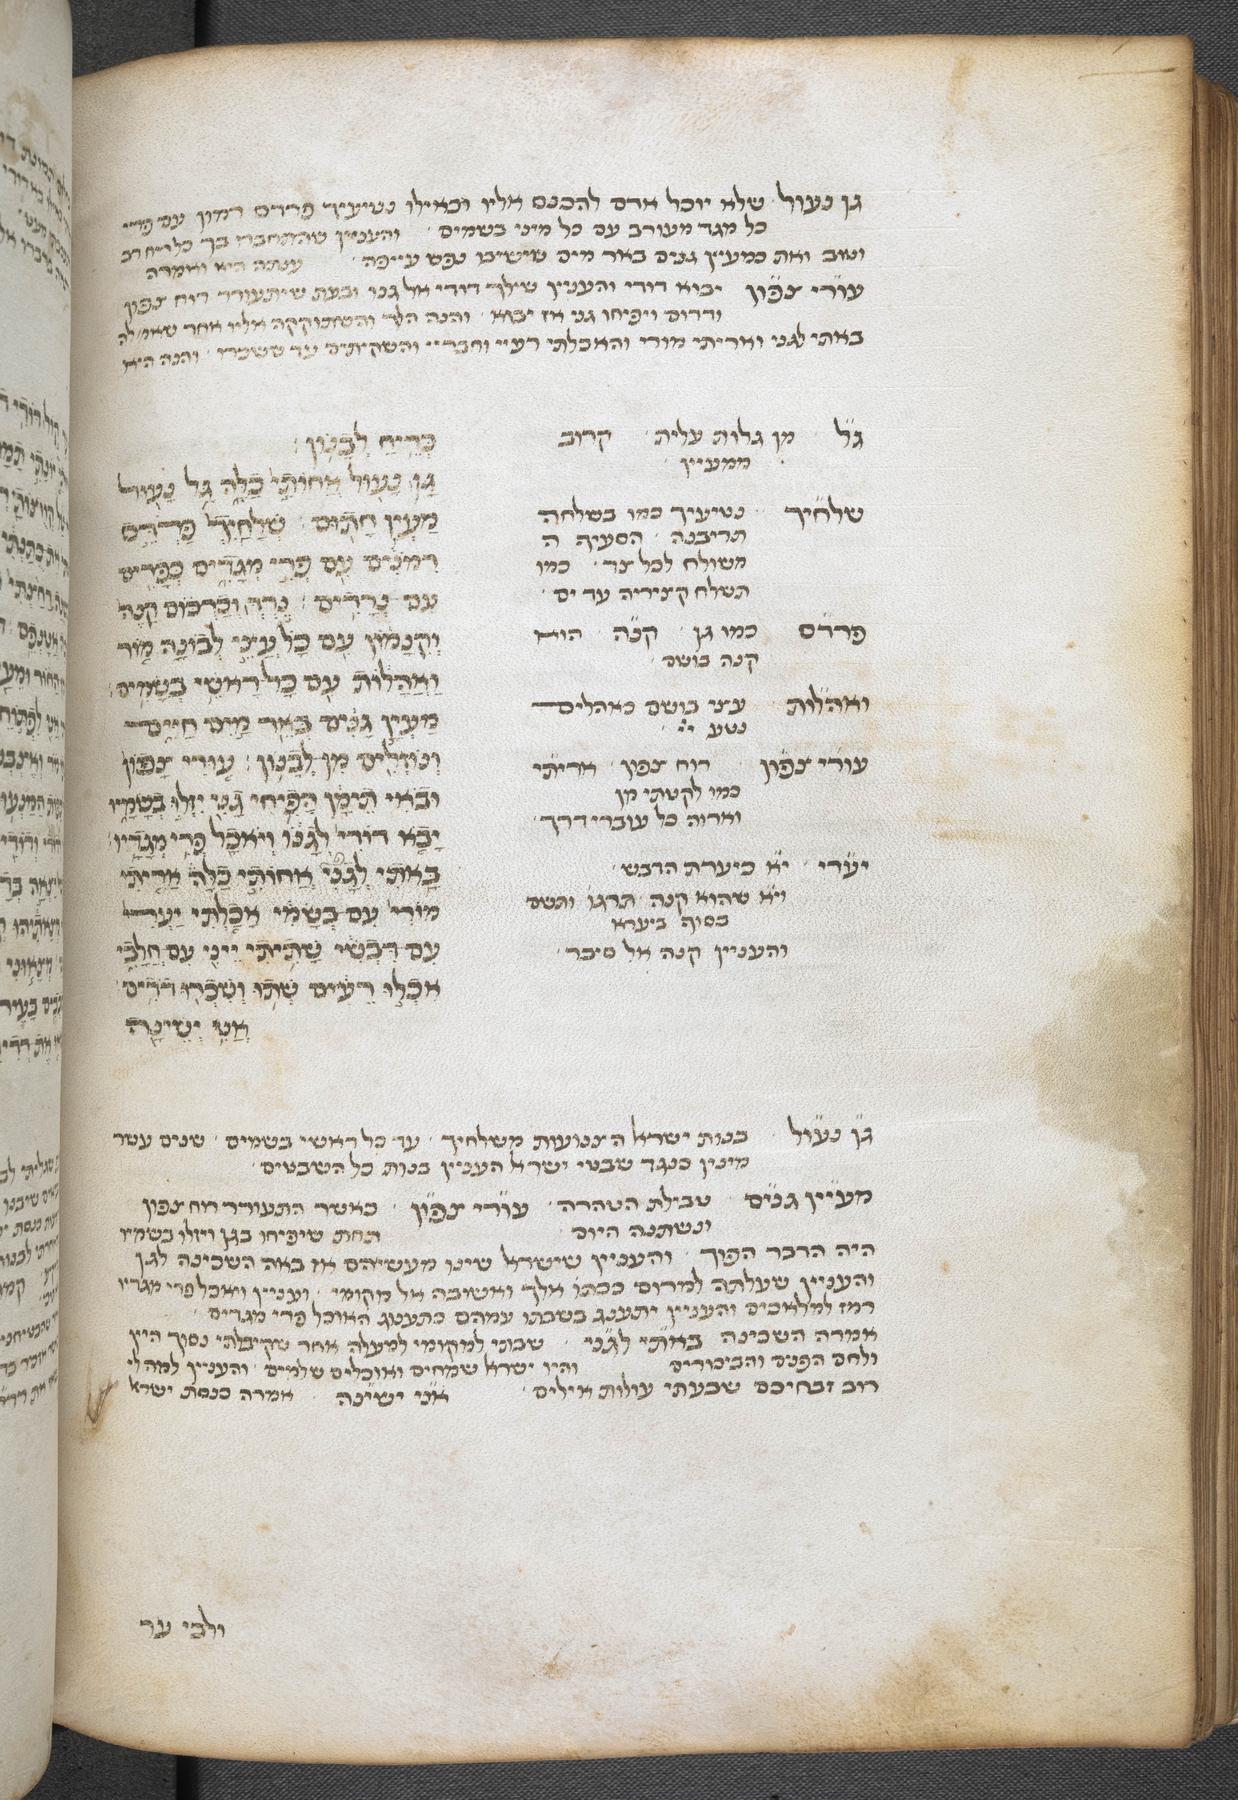 גן נעול שלא יוכל אדם להכנס אליו וכאילו נטיעיך פרדס רמון עם פרי
כל מגד מעורב עם כל מיני בשמים והעניין שהתחברו בך כל ריח רב
וטוב ואת כמעיין גנים באר מים שישיבו נפש עייפה ענתה היא ואמרה
עורי צפון יבוא דודי והעניין שילך דודי אל גנו ובעת שיתעורר רוח צפון
ודרום ויפיחו גני אז יבוא והנה הלך והשתוקקה אליו אחר שאמ' לה
באתי לגני ואריתי מורי והאכלתי רעיי וחבריי והשקיתים עד ששכרו והנה היא
ג"ל מן גלות עלית קרוב
ממעיין
שלחיך נטיעיך כמו בשלחה
תריבנה הסעיף ה
משולח לכל צד כמו
תשלח קציריה עד ים
פרדס כמו גן קנה הוא
קנה בושם
ואהלות עצי בושם כאהלים
נטע יי'
עורי צפון רוח צפון אריתי
כמו לקטתי מן
וארוה כל עוברי דרך
יערי י"א כיערת הדבש
וי"א שהוא קנה תרגו' ותשם
בסוף ביערא
והעניין קנה אל סיבר
כְּרֵיחַ לְבָנוֹן
גַּן נָעוּל אֲחוֹתִי כַלָּה גַּל נָעוּל
מַעְיָן חָתוּם שְׁלָחַיִךְ פַּרְדֵּס
רִמּוֹנִים עִם פְּרִי מְגָדִים כְּפָרִים
עִם נְרָדִים נֵרְדְּ וְכַרְכּוֹם קָנֶה
וְקִנָּמוֹן עִם כָּל עֲצֵי לְבוֹנָה מוֹר
וַאֲהָלוֹת עִם כָּל רָאשֵׁי בְשָׂמִים
מַעְיַן גַּנִּים בְּאֵר מַיִם חַיִּים
וְנוֹזְלִים מִן לְבָנוֹן עוּרִי צָפוֹן
וּבֹאִי תֵימָן הָפִיחִי גַנִּי יִזְּלוּ בְשָׂמָיו
יָבֹא דוֹדִי לְגַנּוֹ וְיֹאכַל פְּרִי מְגָדָיו
בָּאתִי לְגַנִּי אֲחוֹתִי כַלָּה אָרִיתִי
מוֹרִי עִם בְּשָׂמִי אָכַלְתִּי יַעְרִי
עִם דִּבְשִׁי שָׁתִיתִי יֵינִי עִם חֲלָבִי
אִכְלוּ רֵעִים שְׁתוּ וְשִׁכְרוּ דּוֹדִים
אֲנִי יְשֵׁינָה
ג"ן נע"ול בנות ישרא' הצנועות משלחיך עד כל ראשי בשמים שנים עשר
מינין כנגד שבטי ישרא' העניין בנות כל השבטים
מע"יין ג"נים טבילת הטהרה עו"רי צפ"ון כאשר התעורר רוח צפון
ונשתנה היום תחת שיפיחו בגן ויזלו בשמיו
היה הדבר הפוך והעניין שישרא' שינו מעשיהם אז באה השכינה לגן
והעניין שעלתה למרום ככתו' אלך ואשובה אל מקומי ועניין ויאכל פרי מגדיו
רמז למלאכים והעניין יתענג בשבתו עמהם כתענוג האוכל פרי מגדים
אמרה השכינה בא"תי לג"ני שבתי למקומי למעלה אחר שקיבלתי נסוך היין
ולחם הפנים והביכורים והיו ישרא' שמחים ואוכלים שלמים והעניין למה לי
רוב זבחיכם שבעתי עולות אילים א"ני יש"ינה אמרה כנסת ישרא'
ולבי ער